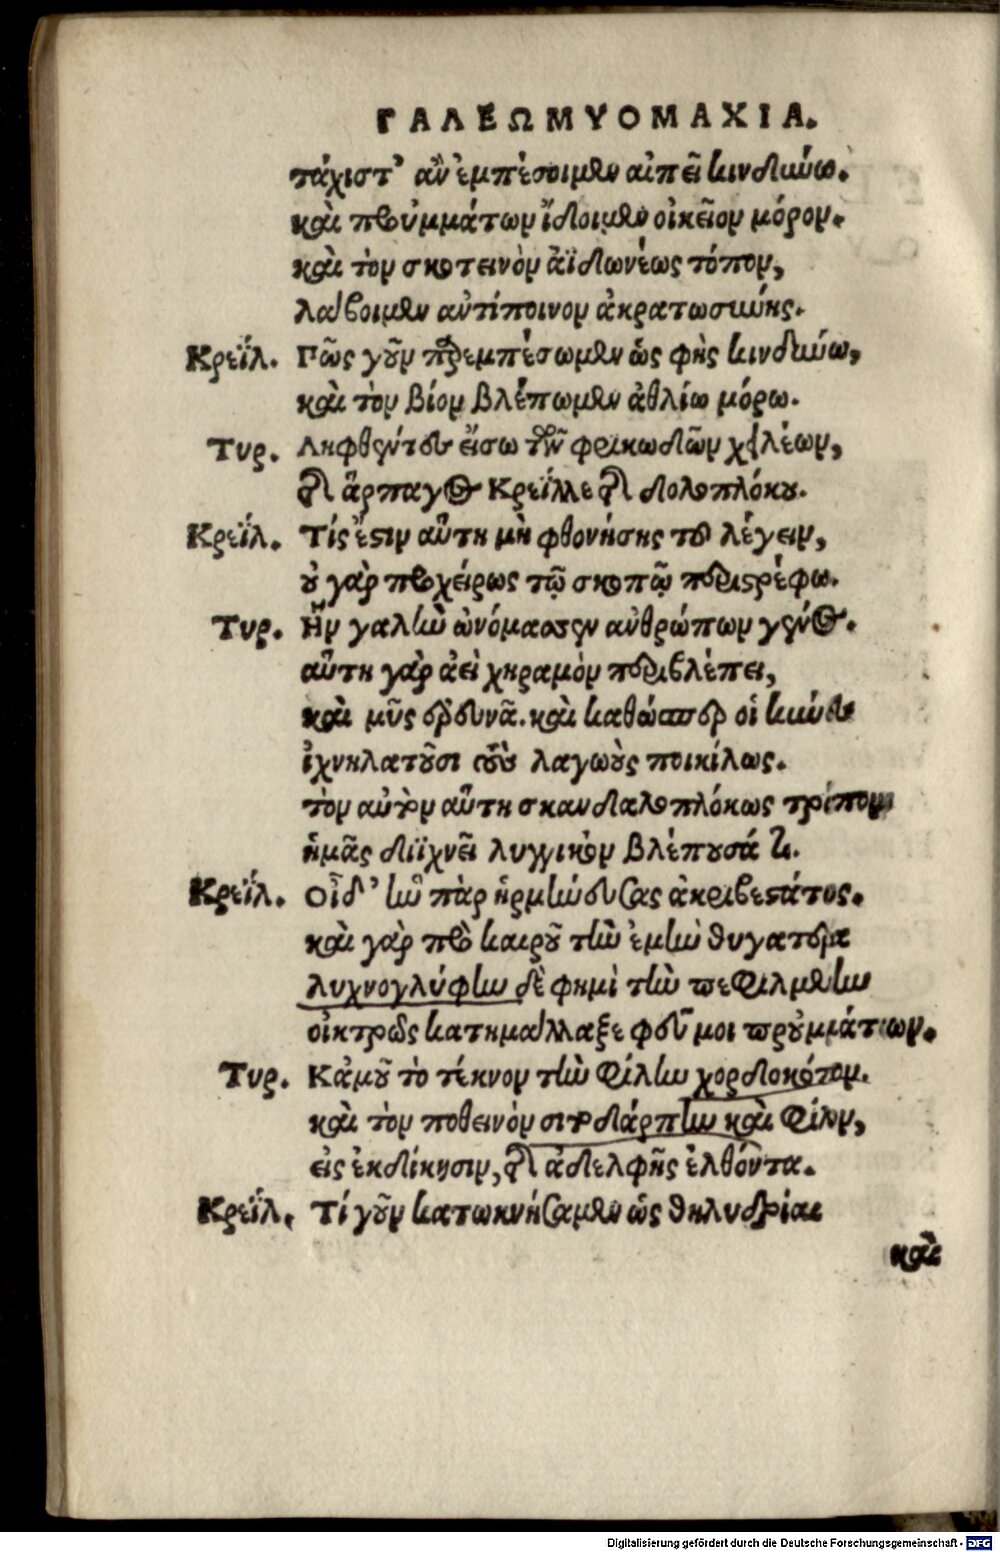 ΓΑΛΕΩΜΥΟΜΑΧΙΑ.
τάχιστ’ ἂν ἐμπέσοιμεν αἰπεῖ κινδύνῳ.
καὶ πρὸ ὀμμάτων ἴδοιμεν οἰκεῖον μόρον.
καὶ τὸν σκοτεινὸν ἀϊδωνέως τόπον,
λάβοιμεν ἀντίποινον ἀκρατωσύνης.
Κρεΐλ. Πῶς γοῦν παρεμπέσωμεν ὡς φῂς κινδύνῳ,
καὶ τὸν βίον βλέπωμεν ἀθλίῳ μόρῳ.
Τυρ. Ληφθέντες εἴσω τῶν φρικωδῶν χειλέων,
τῆς ἅρπαγος Κρεΐλλε τῆς δολοπλόκου.
Κρεΐλ. Τίς ἔστιν αὕτη μὴ φθονήσῃς τοῦ λέγειν,
οὐ γὰρ προχείρως τῷ σκοπῷ περιστρέφω.
Τυρ. Ἣν γαλῆν ὠνόμασεν ἀνθρώπων γένος.
αὕτη γὰρ ἀεὶ χηραμὸν περιβλέπει,
καὶ μῦς ἐρευνᾷ. καὶ καθώσπερ οἱ κύνες
ἰχνηλατοῦσι τοὺς λαγωοὺς ποικίλως.
τὸν αὐτὸν αὕτη σκανδαλοπλόκως τρόπον
ἡμᾶς διϊχνεῖ λυγγικὸν βλέπουσά τι.
Κρεΐλ. Οἶδ’ ἣν παρ ἡρμήνευσας ἀκριβεστάτως.
καὶ γὰρ πρὸ καιροῦ τὴν ἐμὴν θυγατέρα
λυχνογλύφην δὲ φημὶ τὴν πεφιλμένην
οἰκτρῶς κατημάλλαξε φεῦ μοι προὐμμάτων.
Τυρ. Κἀμοῦ τὸ τέκνον τὴν φίλην χορδοκόπον.
καὶ τὸν ποθεινὸν σιτοδάρπην καὶ φίλον,
εἰς ἐκδίκησιν, τῆς ἀδελφῆς ἐλθόντα.
Κρεΐλ. Τί γοῦν κατωκνήσαμεν ὡς θηλυδρίαι
καὶ
Digitalisierung gefördert durch die Deutsche Forschungsgemeinschaft - DFG